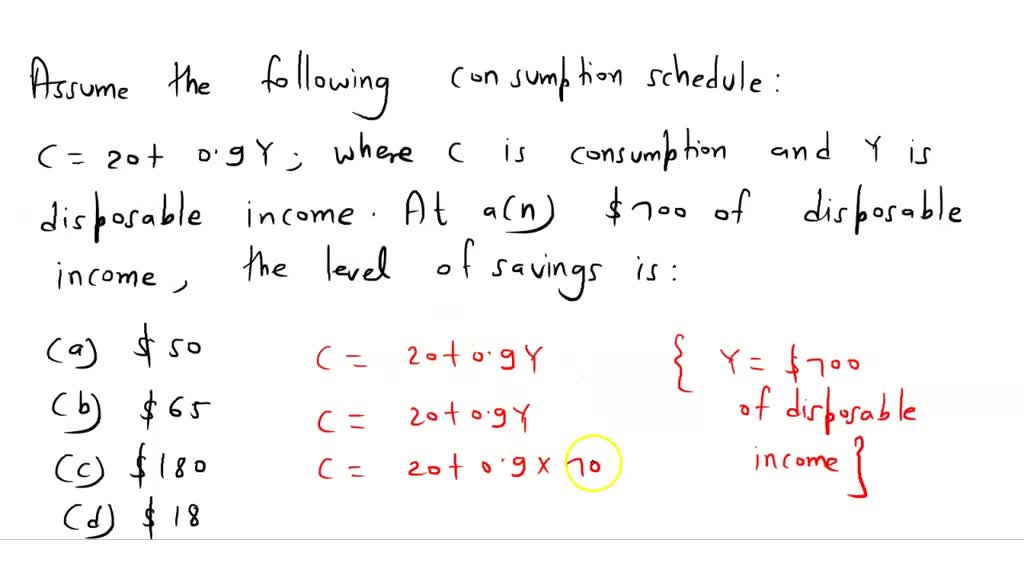 Assume the following consumption schedule:
C = 20 + 0.9Y; where C is consumption and Y is
disposable income. At a(n) $700 of disposable
income, the level of savings is:
(a) $50
(b) $65
(c) $180
(d) $18
C = 20+0.9Y
C = 20+0.9Y
C = 20+0.9×70
{ Y = $700
of disposable
income }